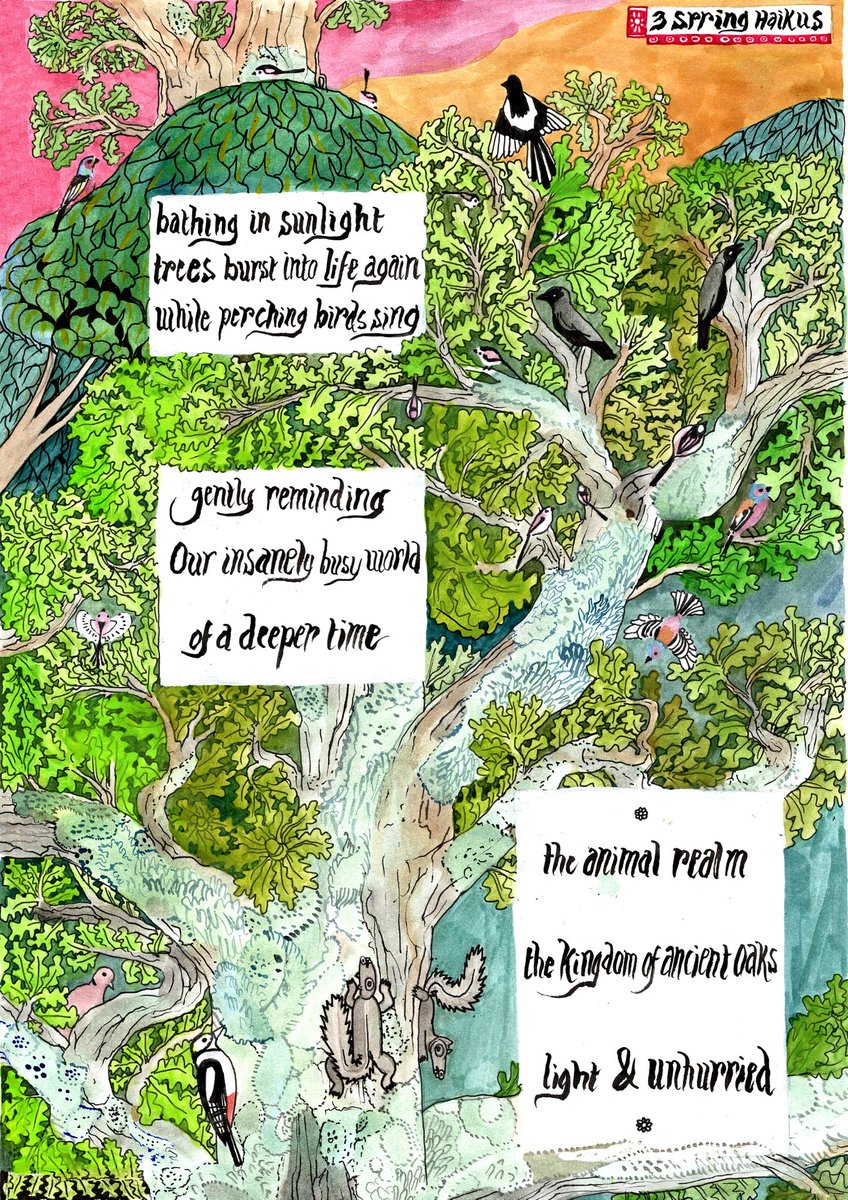 3 Spring Haikus
bathing in sunlight
trees burst into life again
while perching birds sing
gently reminding
Our insanely busy world
of a deeper time
the animal realm
the Kingdom of ancient Oaks
light & unhurried